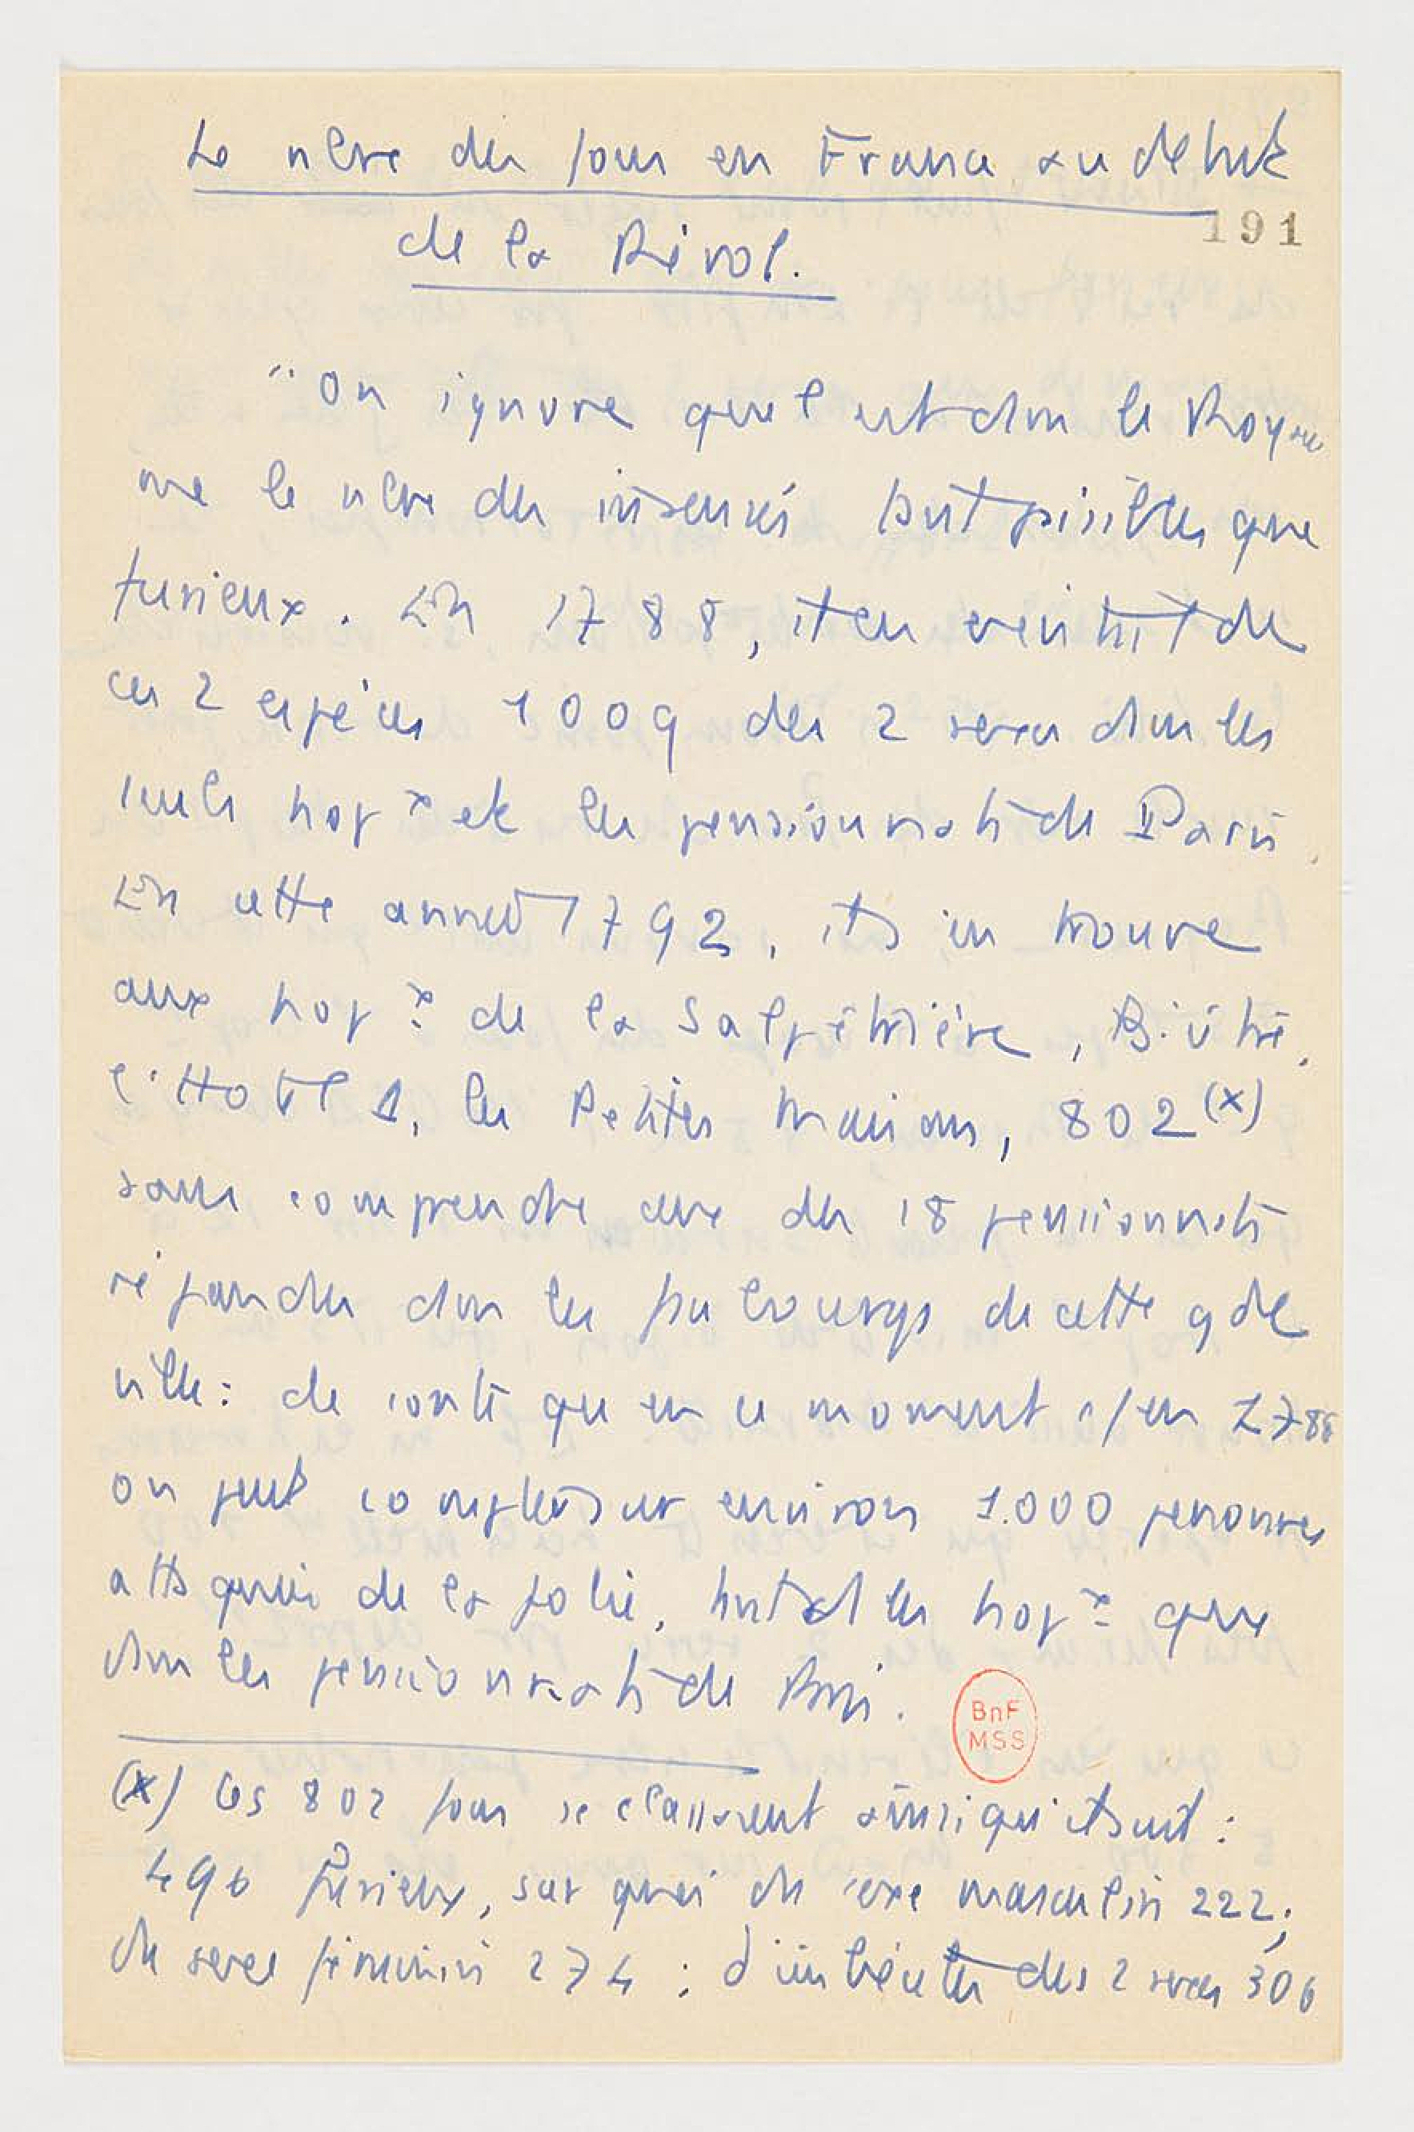 Le nbre des fous en France au début
191
de la Révol.
"On ignore quel est dans le Royau
me le nbre des insensés tant paisibles que
furieux. En 1788, il en existait de
ces 2 espèces 1009 des 2 sexes dans les
seuls hopx et les pensionnats de Paris.
En cette année 1792, il s'en trouve
aux hopx de la Salpêtrière, Bicêtre,
l'Hotel D., les Petites Maisons, 802 (x)
sans comprendre ceux des 18 pensionnats
répandus dans les faubourgs de cette gde
ville : de sorte que en ce moment c/ en 1788
on peut compter sur environ 1.000 personnes
attaquées de la folie, tant ds les hopx que
dans les pensionnats de Paris.
BnF
MSS
(x) Ces 802 fous se classaient ainsi qu'il suit :
496 furieux, sur quoi du sexe masculin 222 ;
du sexe féminin 274 ; d'imbéciles des 2 sexes 306